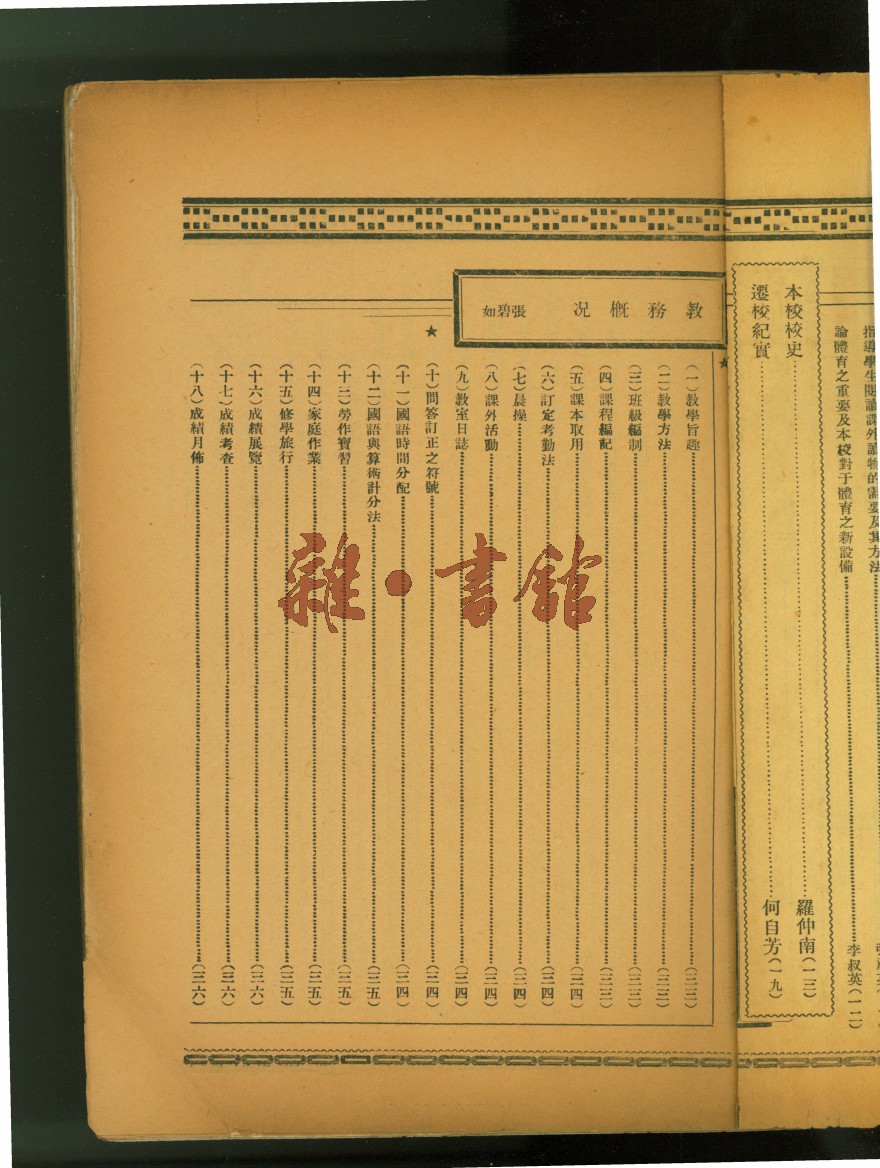 指導學生閱讀課外讀物的需要及其方法
論體育之重要及本校對于體育之新設備……李叔英(一二)
本校校史……羅仲南(一三)
遷校紀實……何自芳(一九)
教務概况 張碧如
(一)教學旨趣……(二三)
(二)教學方法……(二三)
(三)班級編制……(二三)
(四)課程編配……(二三)
(五)課本取用……(二四)
(六)訂定考勤法……(二四)
(七)晨操……(二四)
(八)課外活動……(二四)
(九)教室日誌……(二四)
(十)問答訂正之符號……(二四)
(十一)國語時間分配……(二四)
(十二)國語與算術計分法……(二五)
(十三)勞作實習……(二五)
(十四)家庭作業……(二五)
(十五)修學旅行……(二五)
(十六)成績展覽……(二六)
(十七)成績考查……(二六)
(十八)成績月佈……(二六)
雜·書館